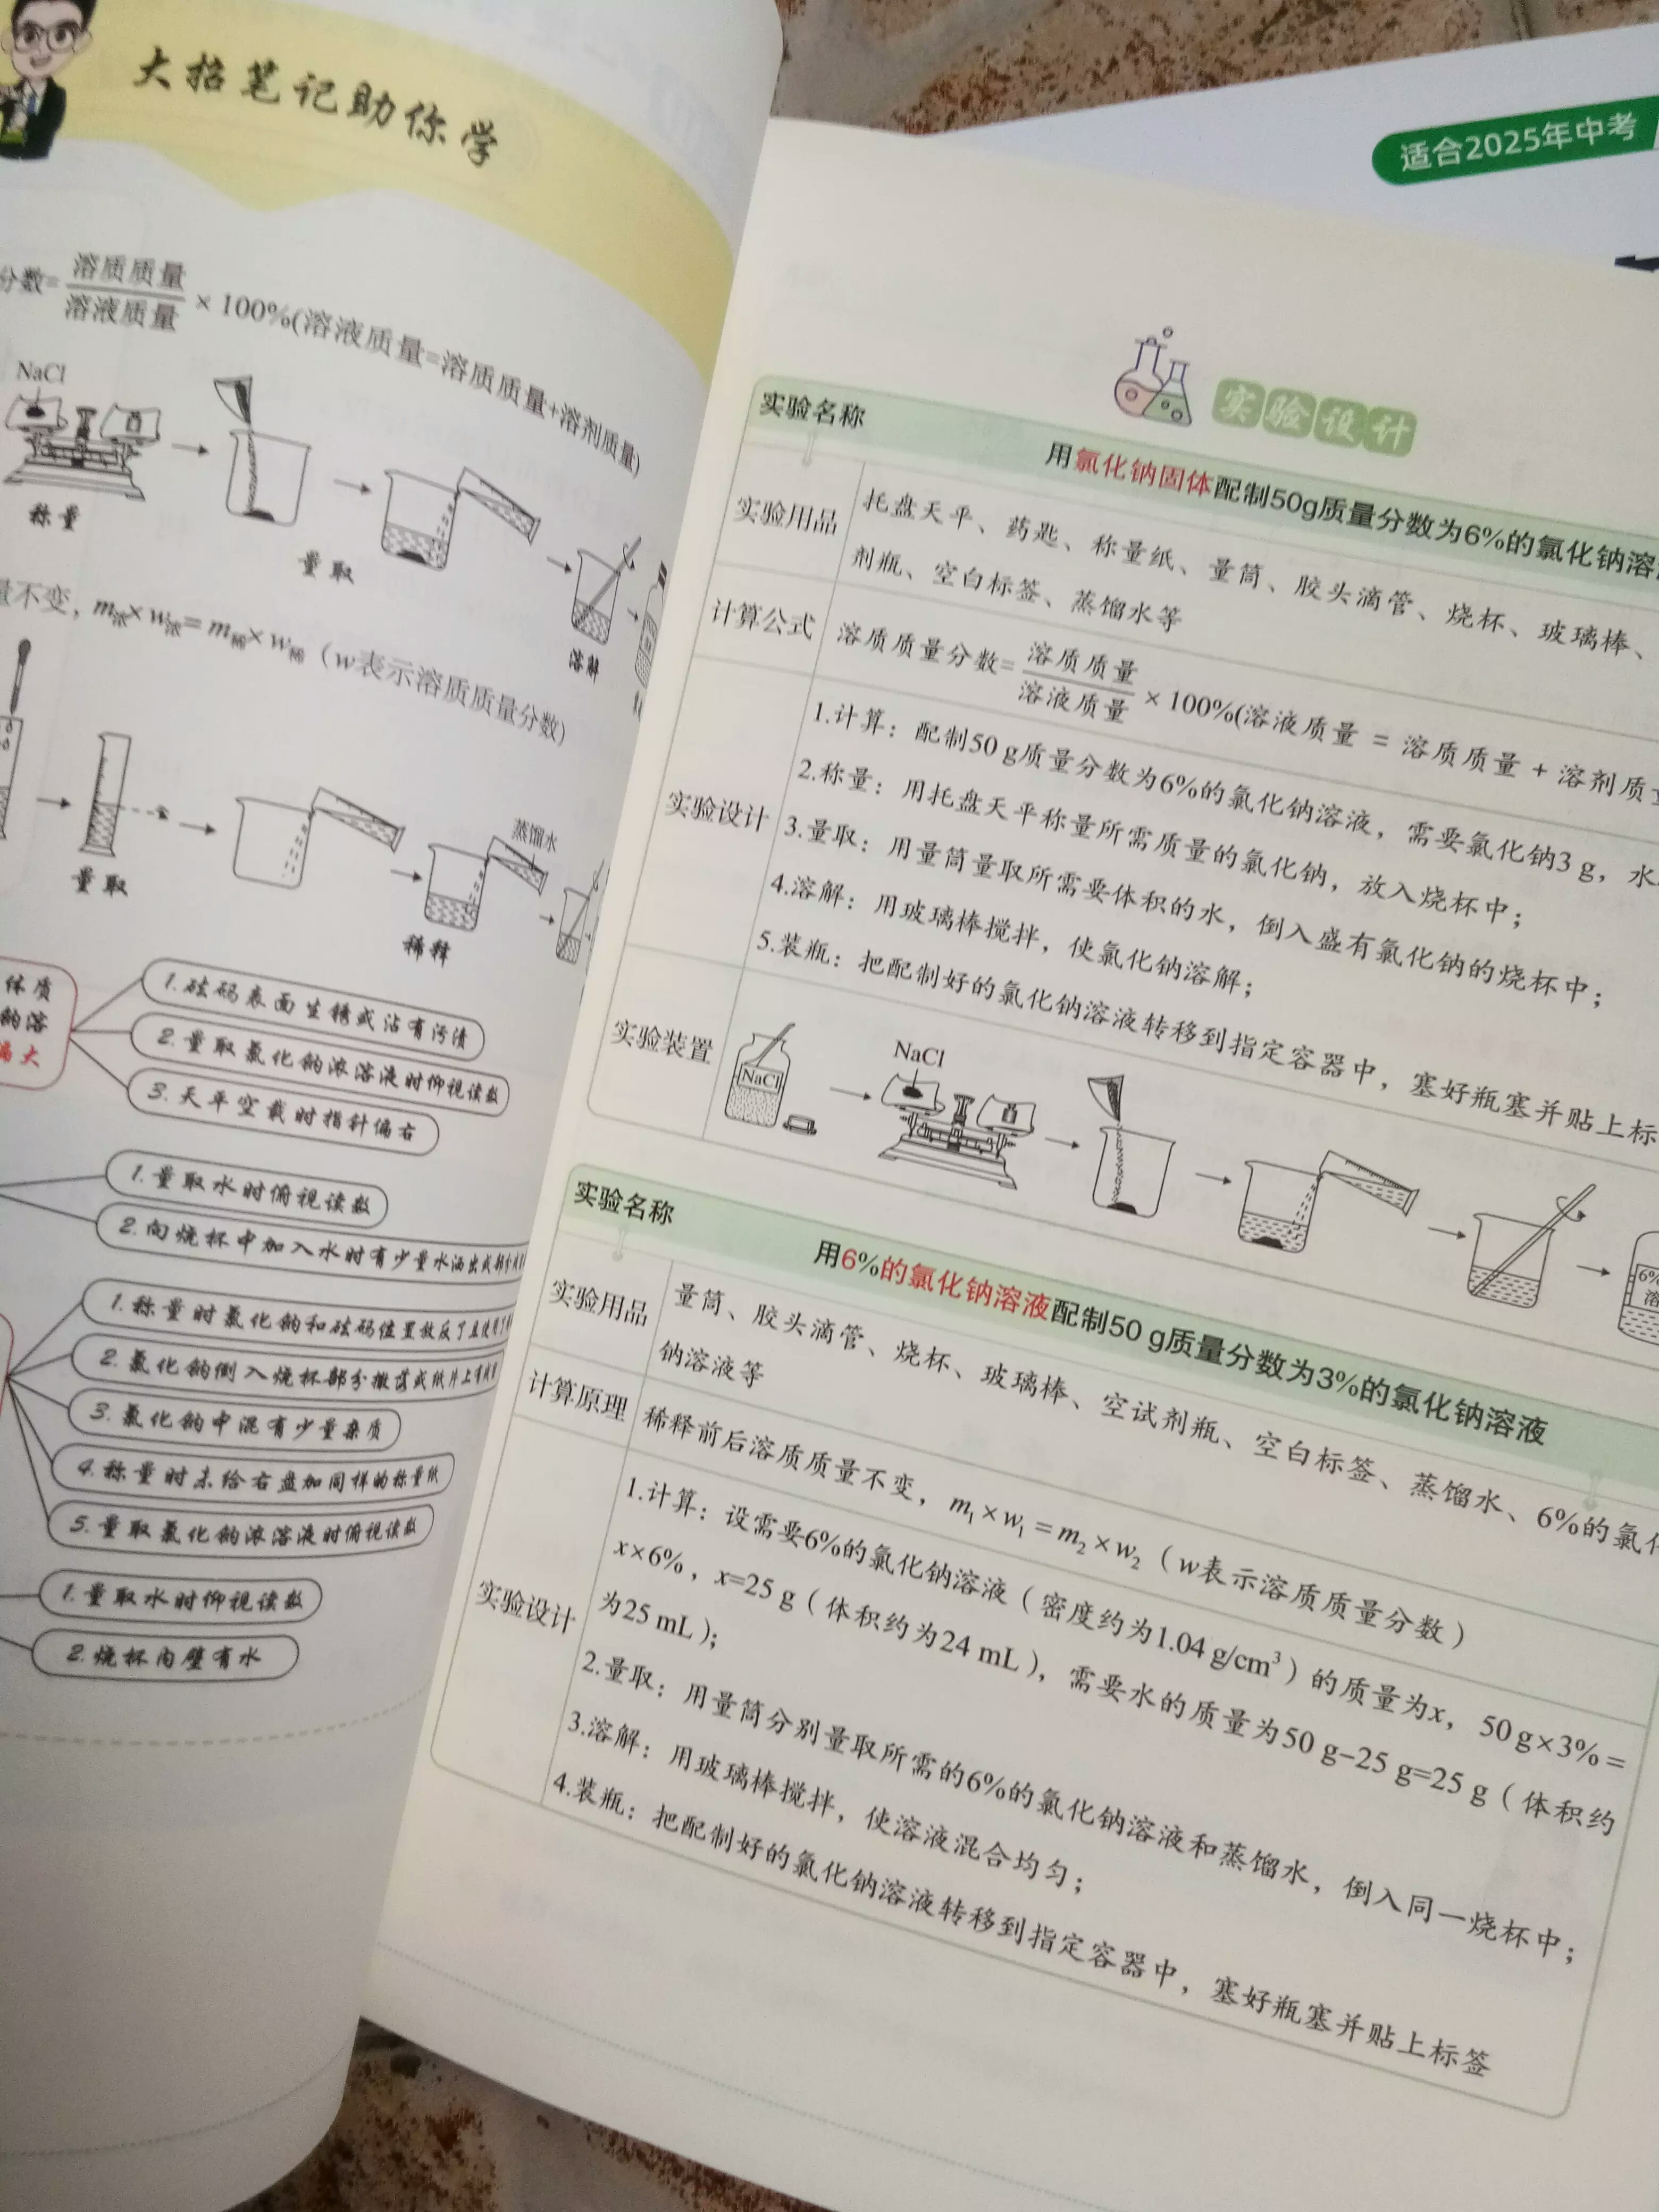 大招笔记助你学
分数=溶质质量/溶液质量×100%(溶液质量=溶质质量+溶剂质量)
NaCl
称量
量取
溶解
量不变，m浓×w浓=m稀×w稀（w表示溶质质量分数）
量取
蒸馏水
稀释
体质
钠溶
偏大
1.砝码表面生锈或沾有污渍
2.量取氯化钠浓溶液时仰视读数
3.天平空载时指针偏右
1.量取水时俯视读数
2.向烧杯中加入水时有少量水洒出或
1.称量时氯化钠和砝码位置放反了且使用了
2.氯化钠倒入烧杯部分撒落或纸片上有
3.氯化钠中混有少量杂质
4.称量时未给右盘加同样的称量纸
5.量取氯化钠浓溶液时俯视读数
1.量取水时仰视读数
2.烧杯内壁有水
适合2025年中考
实验设计
实验名称
用氯化钠固体配制50g质量分数为6%的氯化钠溶
实验用品
托盘天平、药匙、称量纸、量筒、胶头滴管、烧杯、玻璃棒、
剂瓶、空白标签、蒸馏水等
计算公式
溶质质量分数=溶质质量/溶液质量×100%(溶液质量 = 溶质质量 + 溶剂质
实验设计
1.计算：配制50 g质量分数为6%的氯化钠溶液，需要氯化钠3 g，水
2.称量：用托盘天平称量所需质量的氯化钠，放入烧杯中；
3.量取：用量筒量取所需要体积的水，倒入盛有氯化钠的烧杯中；
4.溶解：用玻璃棒搅拌，使氯化钠溶解；
5.装瓶：把配制好的氯化钠溶液转移到指定容器中，塞好瓶塞并贴上标
实验装置
NaCl
NaCl
6%
溶
实验名称
用6%的氯化钠溶液配制50 g质量分数为3%的氯化钠溶液
实验用品
量筒、胶头滴管、烧杯、玻璃棒、空试剂瓶、空白标签、蒸馏水、6%的氯化
钠溶液等
计算原理
稀释前后溶质质量不变，m₁×w₁=m₂×w₂（w表示溶质质量分数）
实验设计
1.计算：设需要6%的氯化钠溶液（密度约为1.04 g/cm³）的质量为x，50 g×3%=
x×6%，x=25 g（体积约为24 mL），需要水的质量为50 g-25 g=25 g（体积约
为25 mL）；
2.量取：用量筒分别量取所需的6%的氯化钠溶液和蒸馏水，倒入同一烧杯中；
3.溶解：用玻璃棒搅拌，使溶液混合均匀；
4.装瓶：把配制好的氯化钠溶液转移到指定容器中，塞好瓶塞并贴上标签